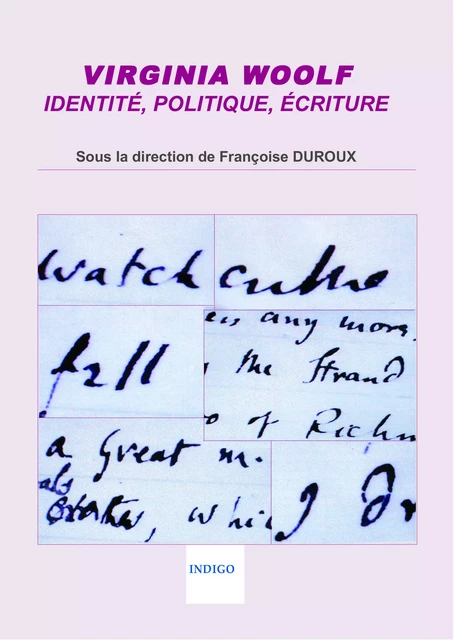 VIRGINIA WOOLF
IDENTITÉ, POLITIQUE, ÉCRITURE
Sous la direction de Françoise DUROUX
watch
fell
any more.
the Strand
of Richm
a great m
whi
I dr
INDIGO